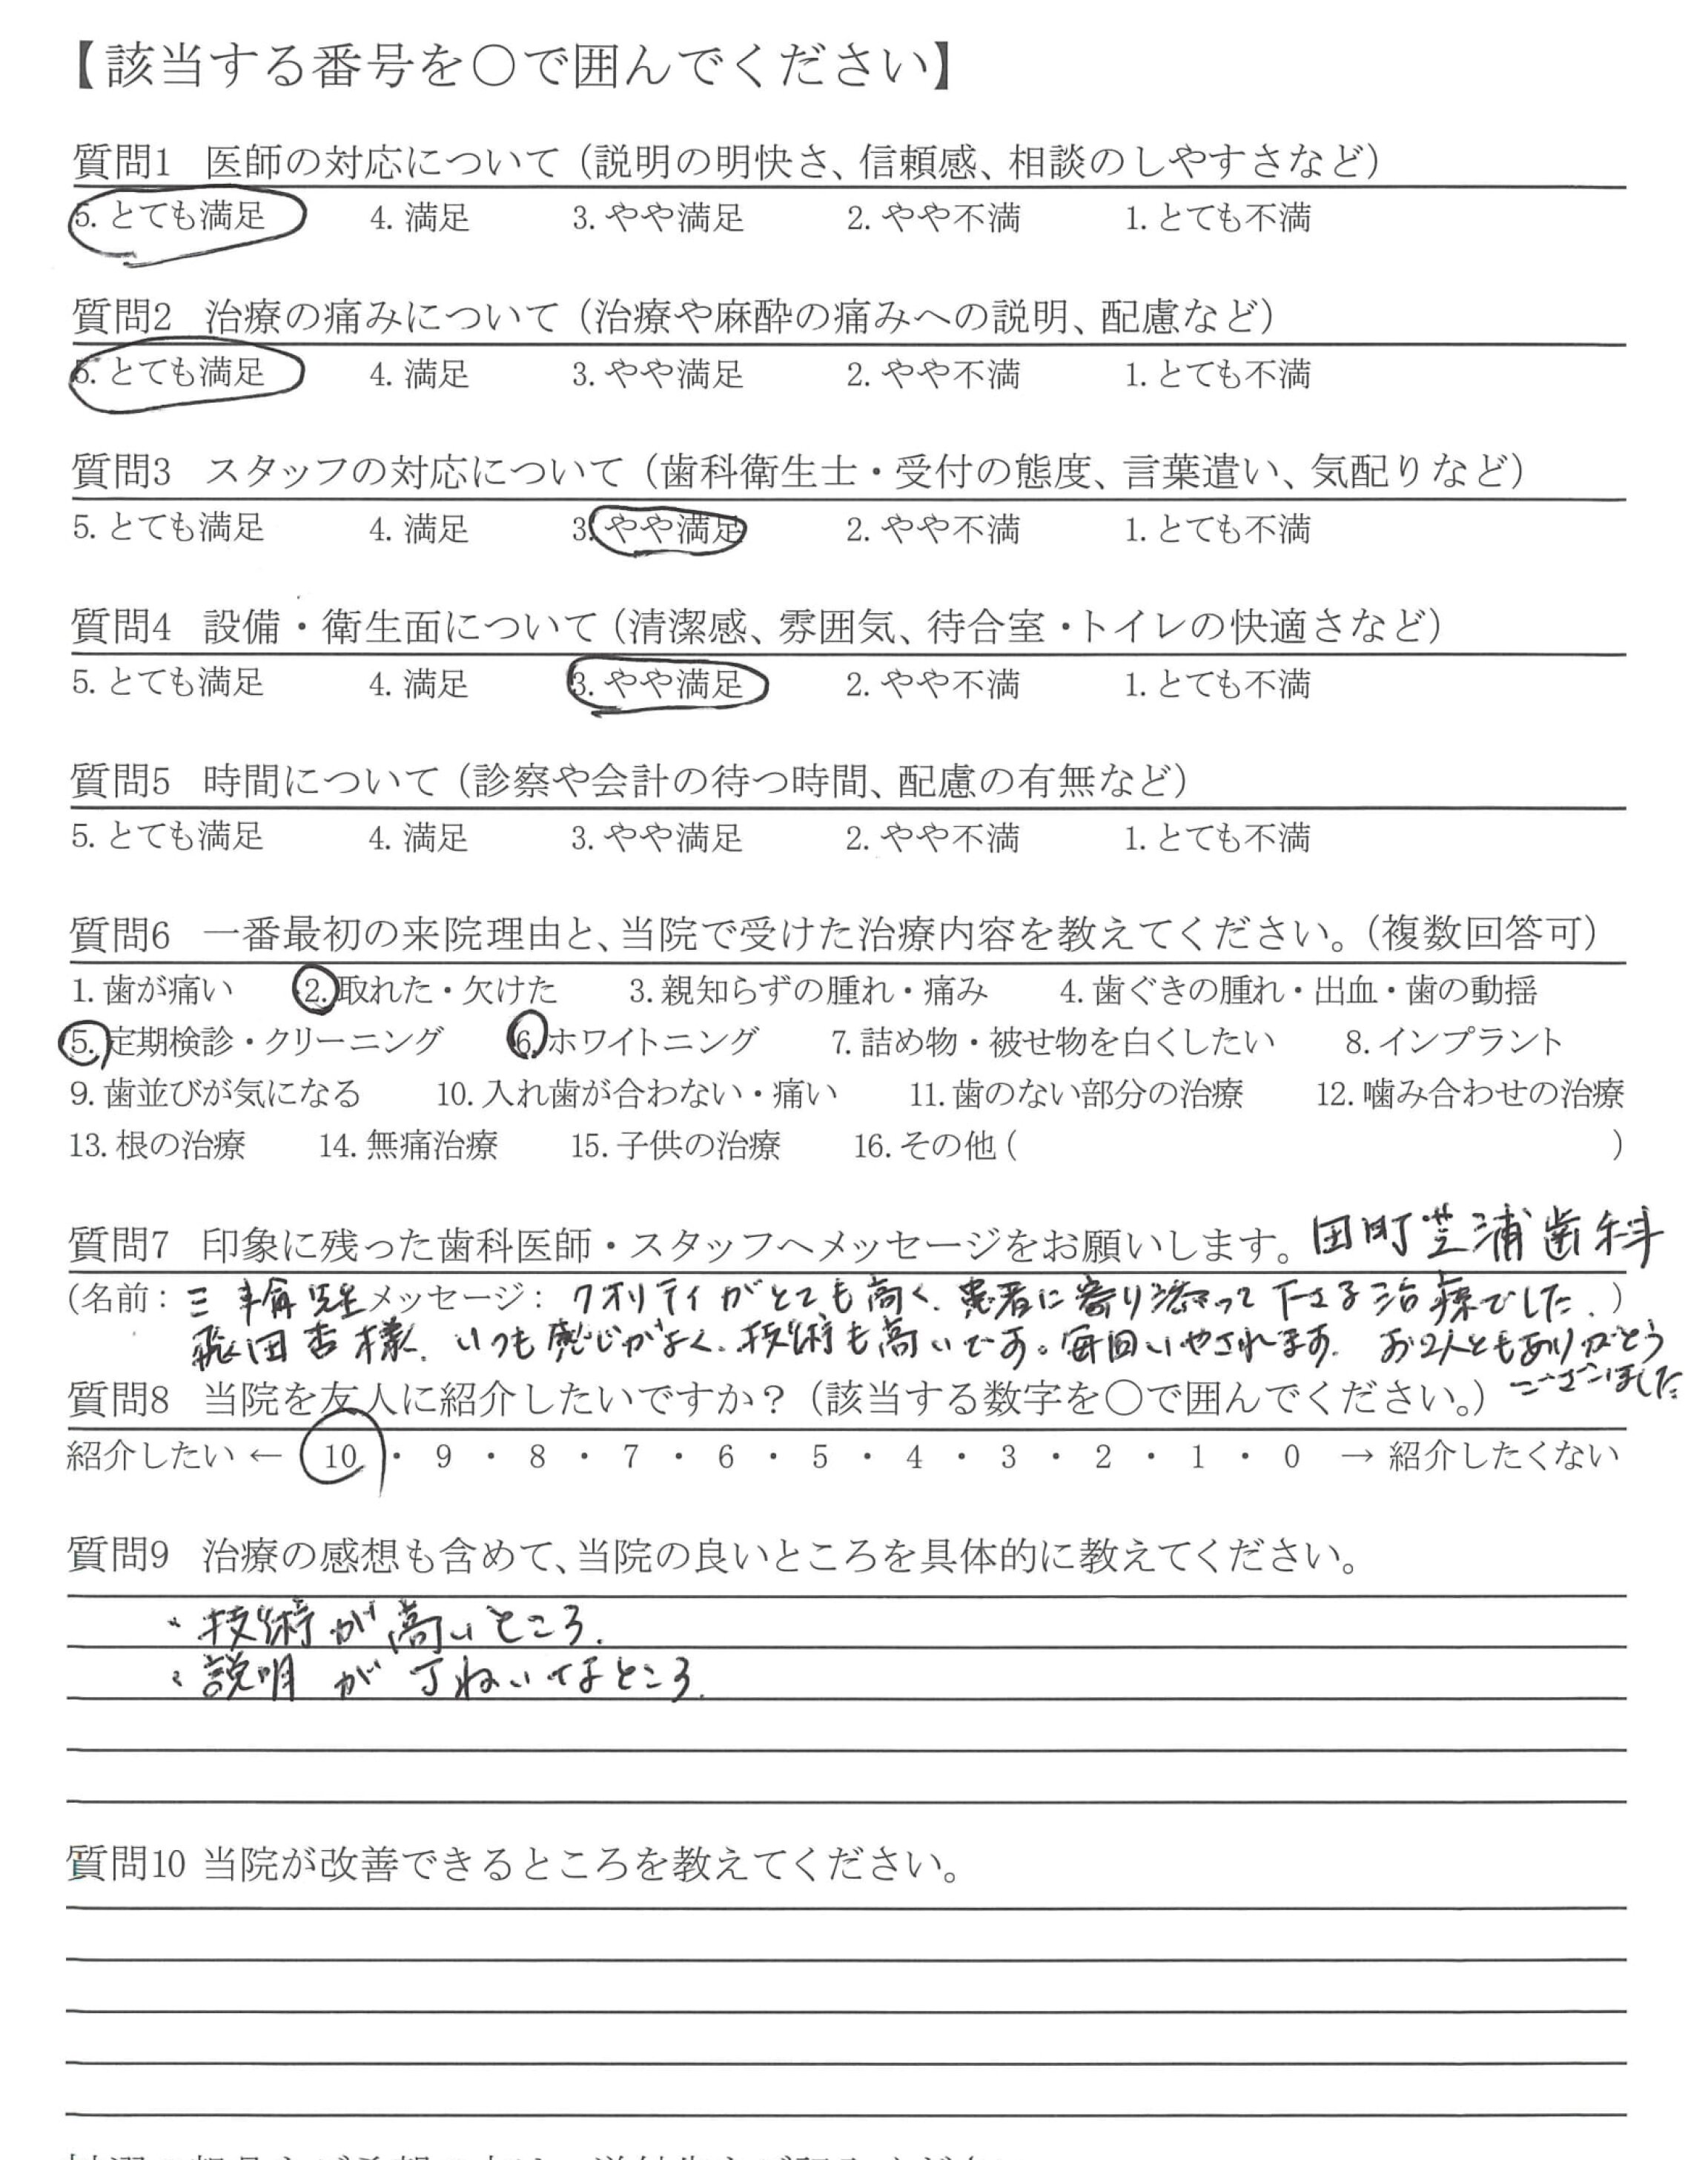 【該当する番号を〇で囲んでください】
質問1 医師の対応について（説明の明快さ、信頼感、相談のしやすさなど）
5. とても満足 4. 満足 3. やや満足 2. やや不満 1. とても不満
質問2 治療の痛みについて（治療や麻酔の痛みへの説明、配慮など）
5. とても満足 4. 満足 3. やや満足 2. やや不満 1. とても不満
質問3 スタッフの対応について（歯科衛生士・受付の態度、言葉遣い、気配りなど）
5. とても満足 4. 満足 3. やや満足 2. やや不満 1. とても不満
質問4 設備・衛生面について（清潔感、雰囲気、待合室・トイレの快適さなど）
5. とても満足 4. 満足 3. やや満足 2. やや不満 1. とても不満
質問5 時間について（診察や会計の待つ時間、配慮の有無など）
5. とても満足 4. 満足 3. やや満足 2. やや不満 1. とても不満
質問6 一番最初の来院理由と、当院で受けた治療内容を教えてください。（複数回答可）
1. 歯が痛い 2. 取れた・欠けた 3. 親知らずの腫れ・痛み 4. 歯ぐきの腫れ・出血・歯の動揺
5. 定期検診・クリーニング 6. ホワイトニング 7. 詰め物・被せ物を白くしたい 8. インプラント
9. 歯並びが気になる 10. 入れ歯が合わない・痛い 11. 歯のない部分の治療 12. 噛み合わせの治療
13. 根の治療 14. 無痛治療 15. 子供の治療 16. その他（ ）
質問7 印象に残った歯科医師・スタッフへメッセージをお願いします。田町芝浦歯科
（名前：三輪先生 メッセージ：クオリティがとても高く、患者に寄り添って下さる治療でした。）
飛田杏様、いつも感じがよく、技術も高いです。毎回いやされます。お2人ともありがとう
ございました
質問8 当院を友人に紹介したいですか？（該当する数字を〇で囲んでください。）
紹介したい ← 10 ・ 9 ・ 8 ・ 7 ・ 6 ・ 5 ・ 4 ・ 3 ・ 2 ・ 1 ・ 0 → 紹介したくない
質問9 治療の感想も含めて、当院の良いところを具体的に教えてください。
・技術が高いところ。
・説明が丁ねいなところ。
質問10 当院が改善できるところを教えてください。